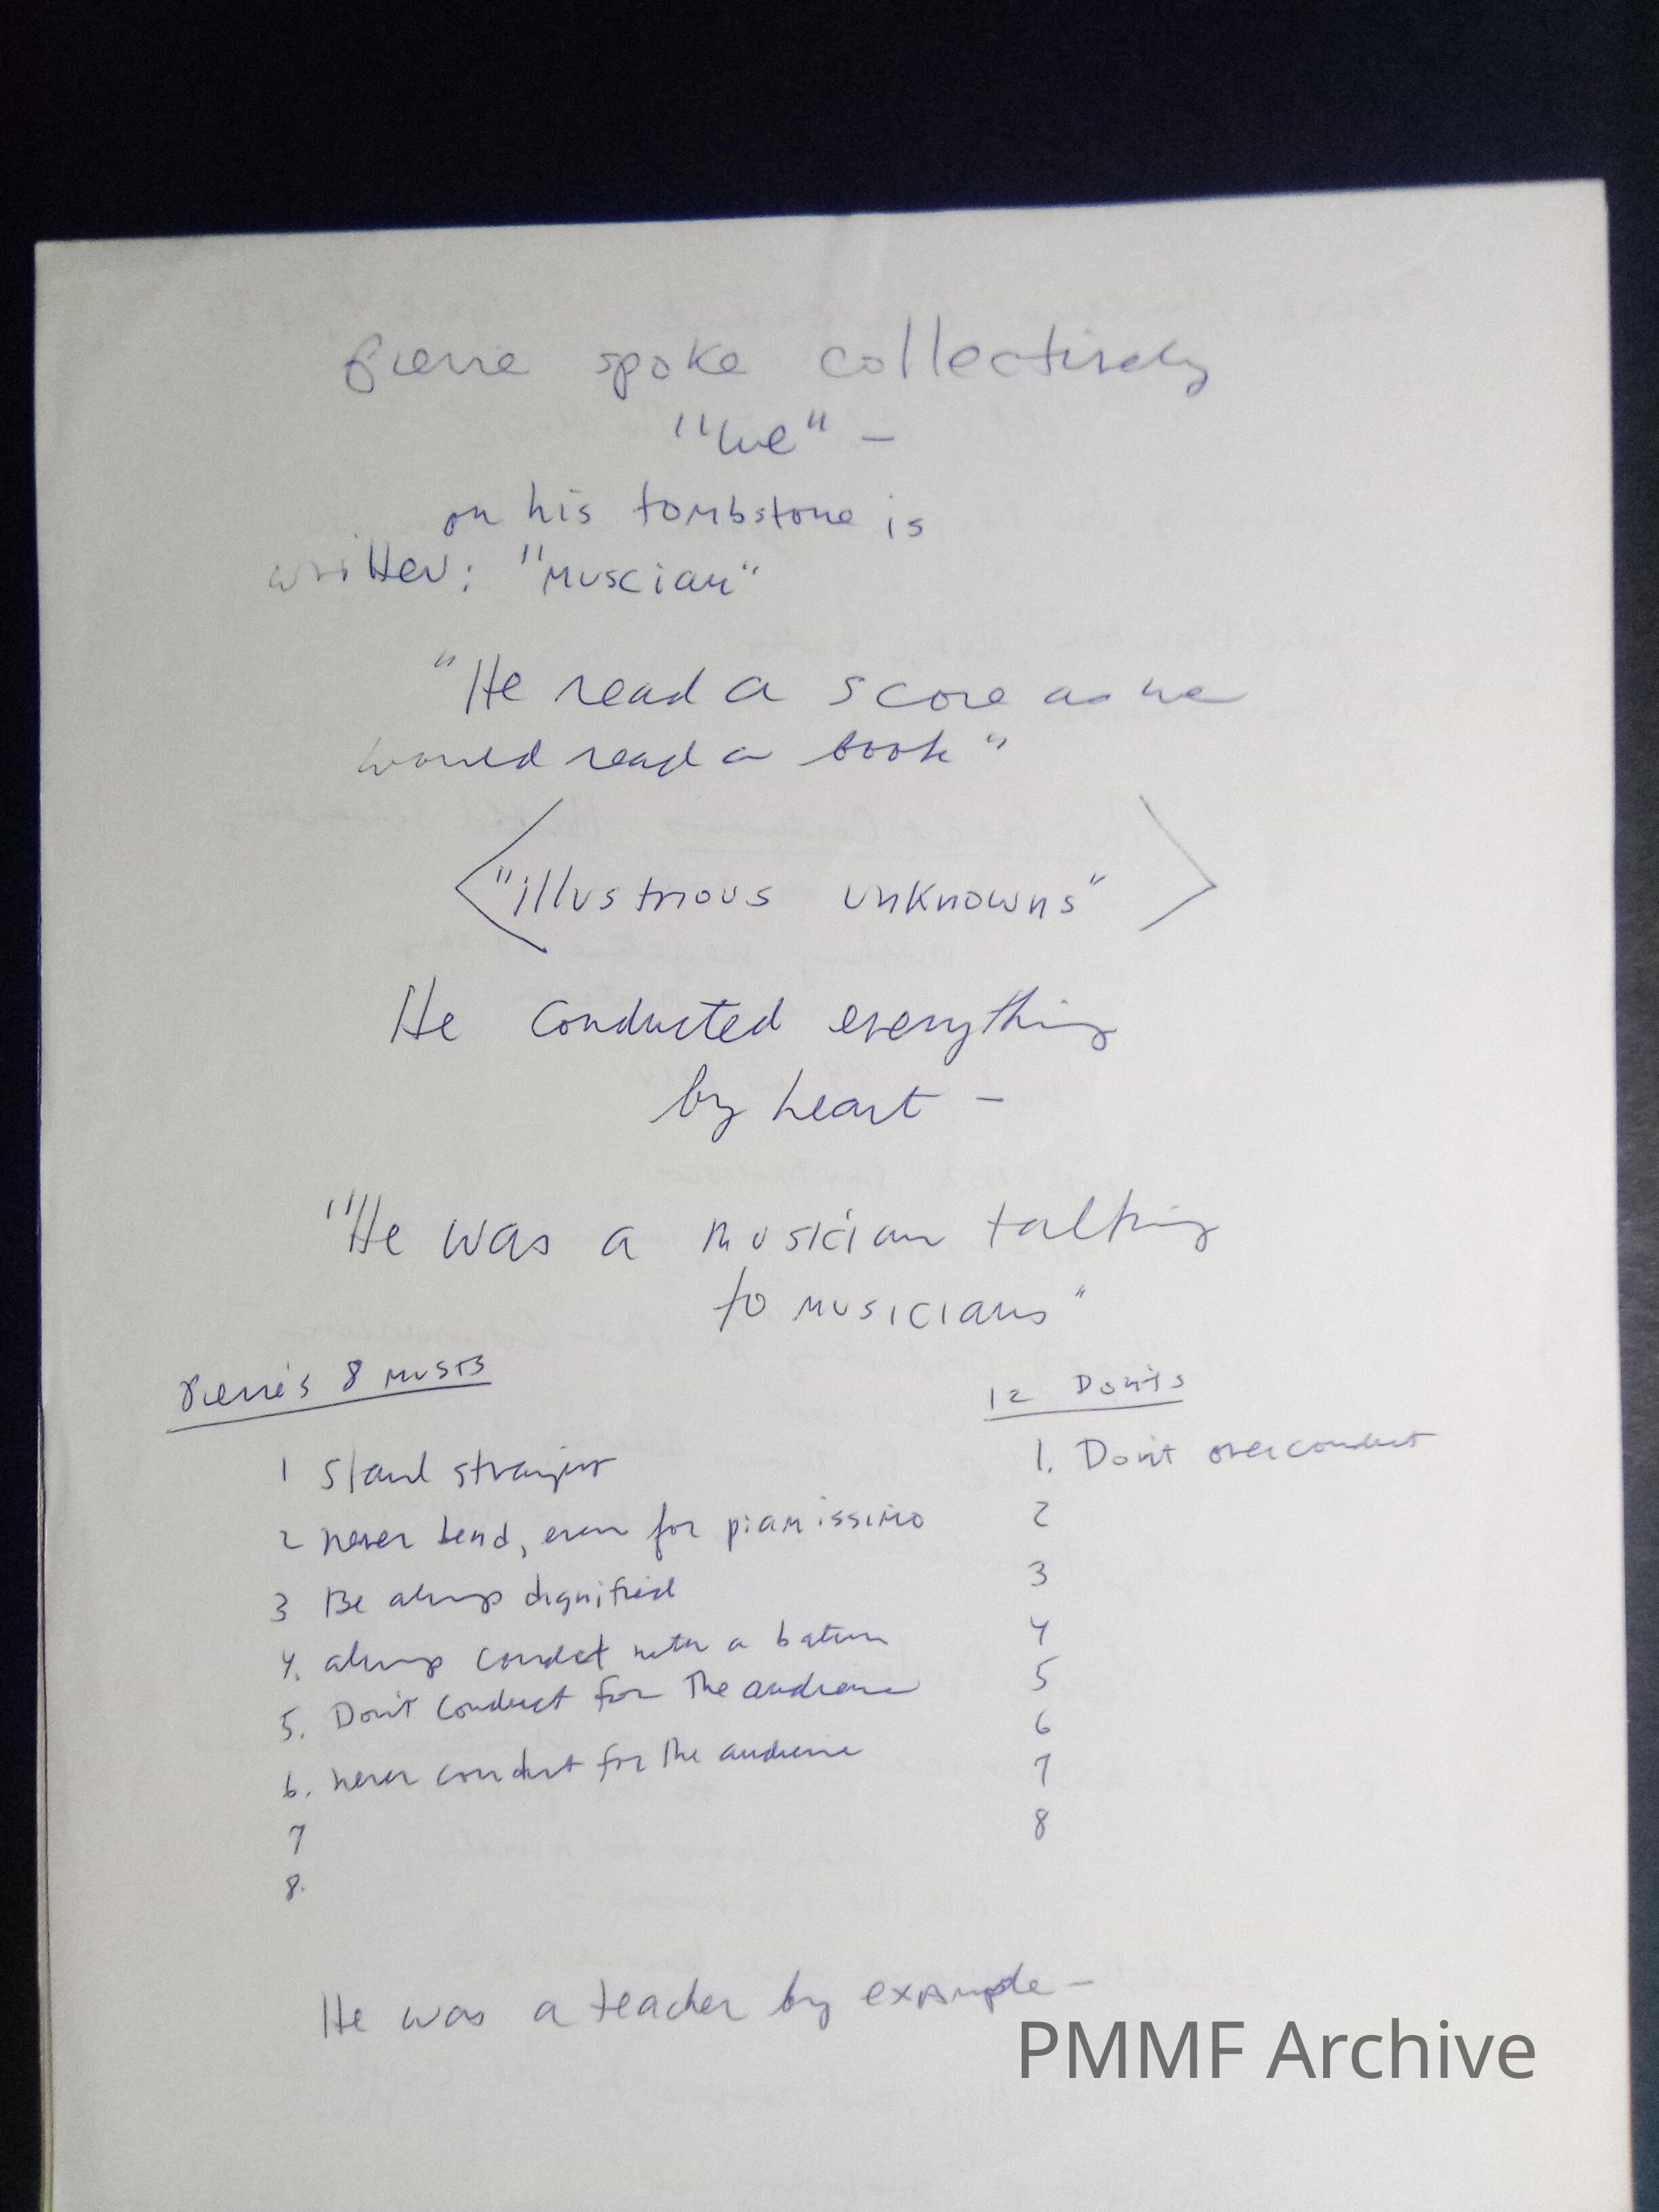 Pierre spoke collectively
"we" –
on his tombstone is
written: "Muscian"
"He read a score as he
would read a book"
"illustrious unknowns"
He conducted everything
by heart –
"He was a musician talking
to musicians"
Pierre's 8 musts
1 Stand straight
2 never bend, even for pianissimo
3 Be always dignified
4. always conduct with a baton
5. Don't conduct for the audience
6. never conduct for the audience
7
8.
12 Don'ts
1. Don't overconduct
2
3
4
5
6
7
8
He was a teacher by example –
PMMF Archive